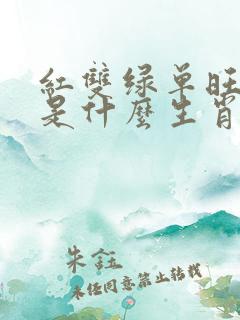 紅雙绿单旺
是什麼生肖
朱钰
未经同意禁止转载